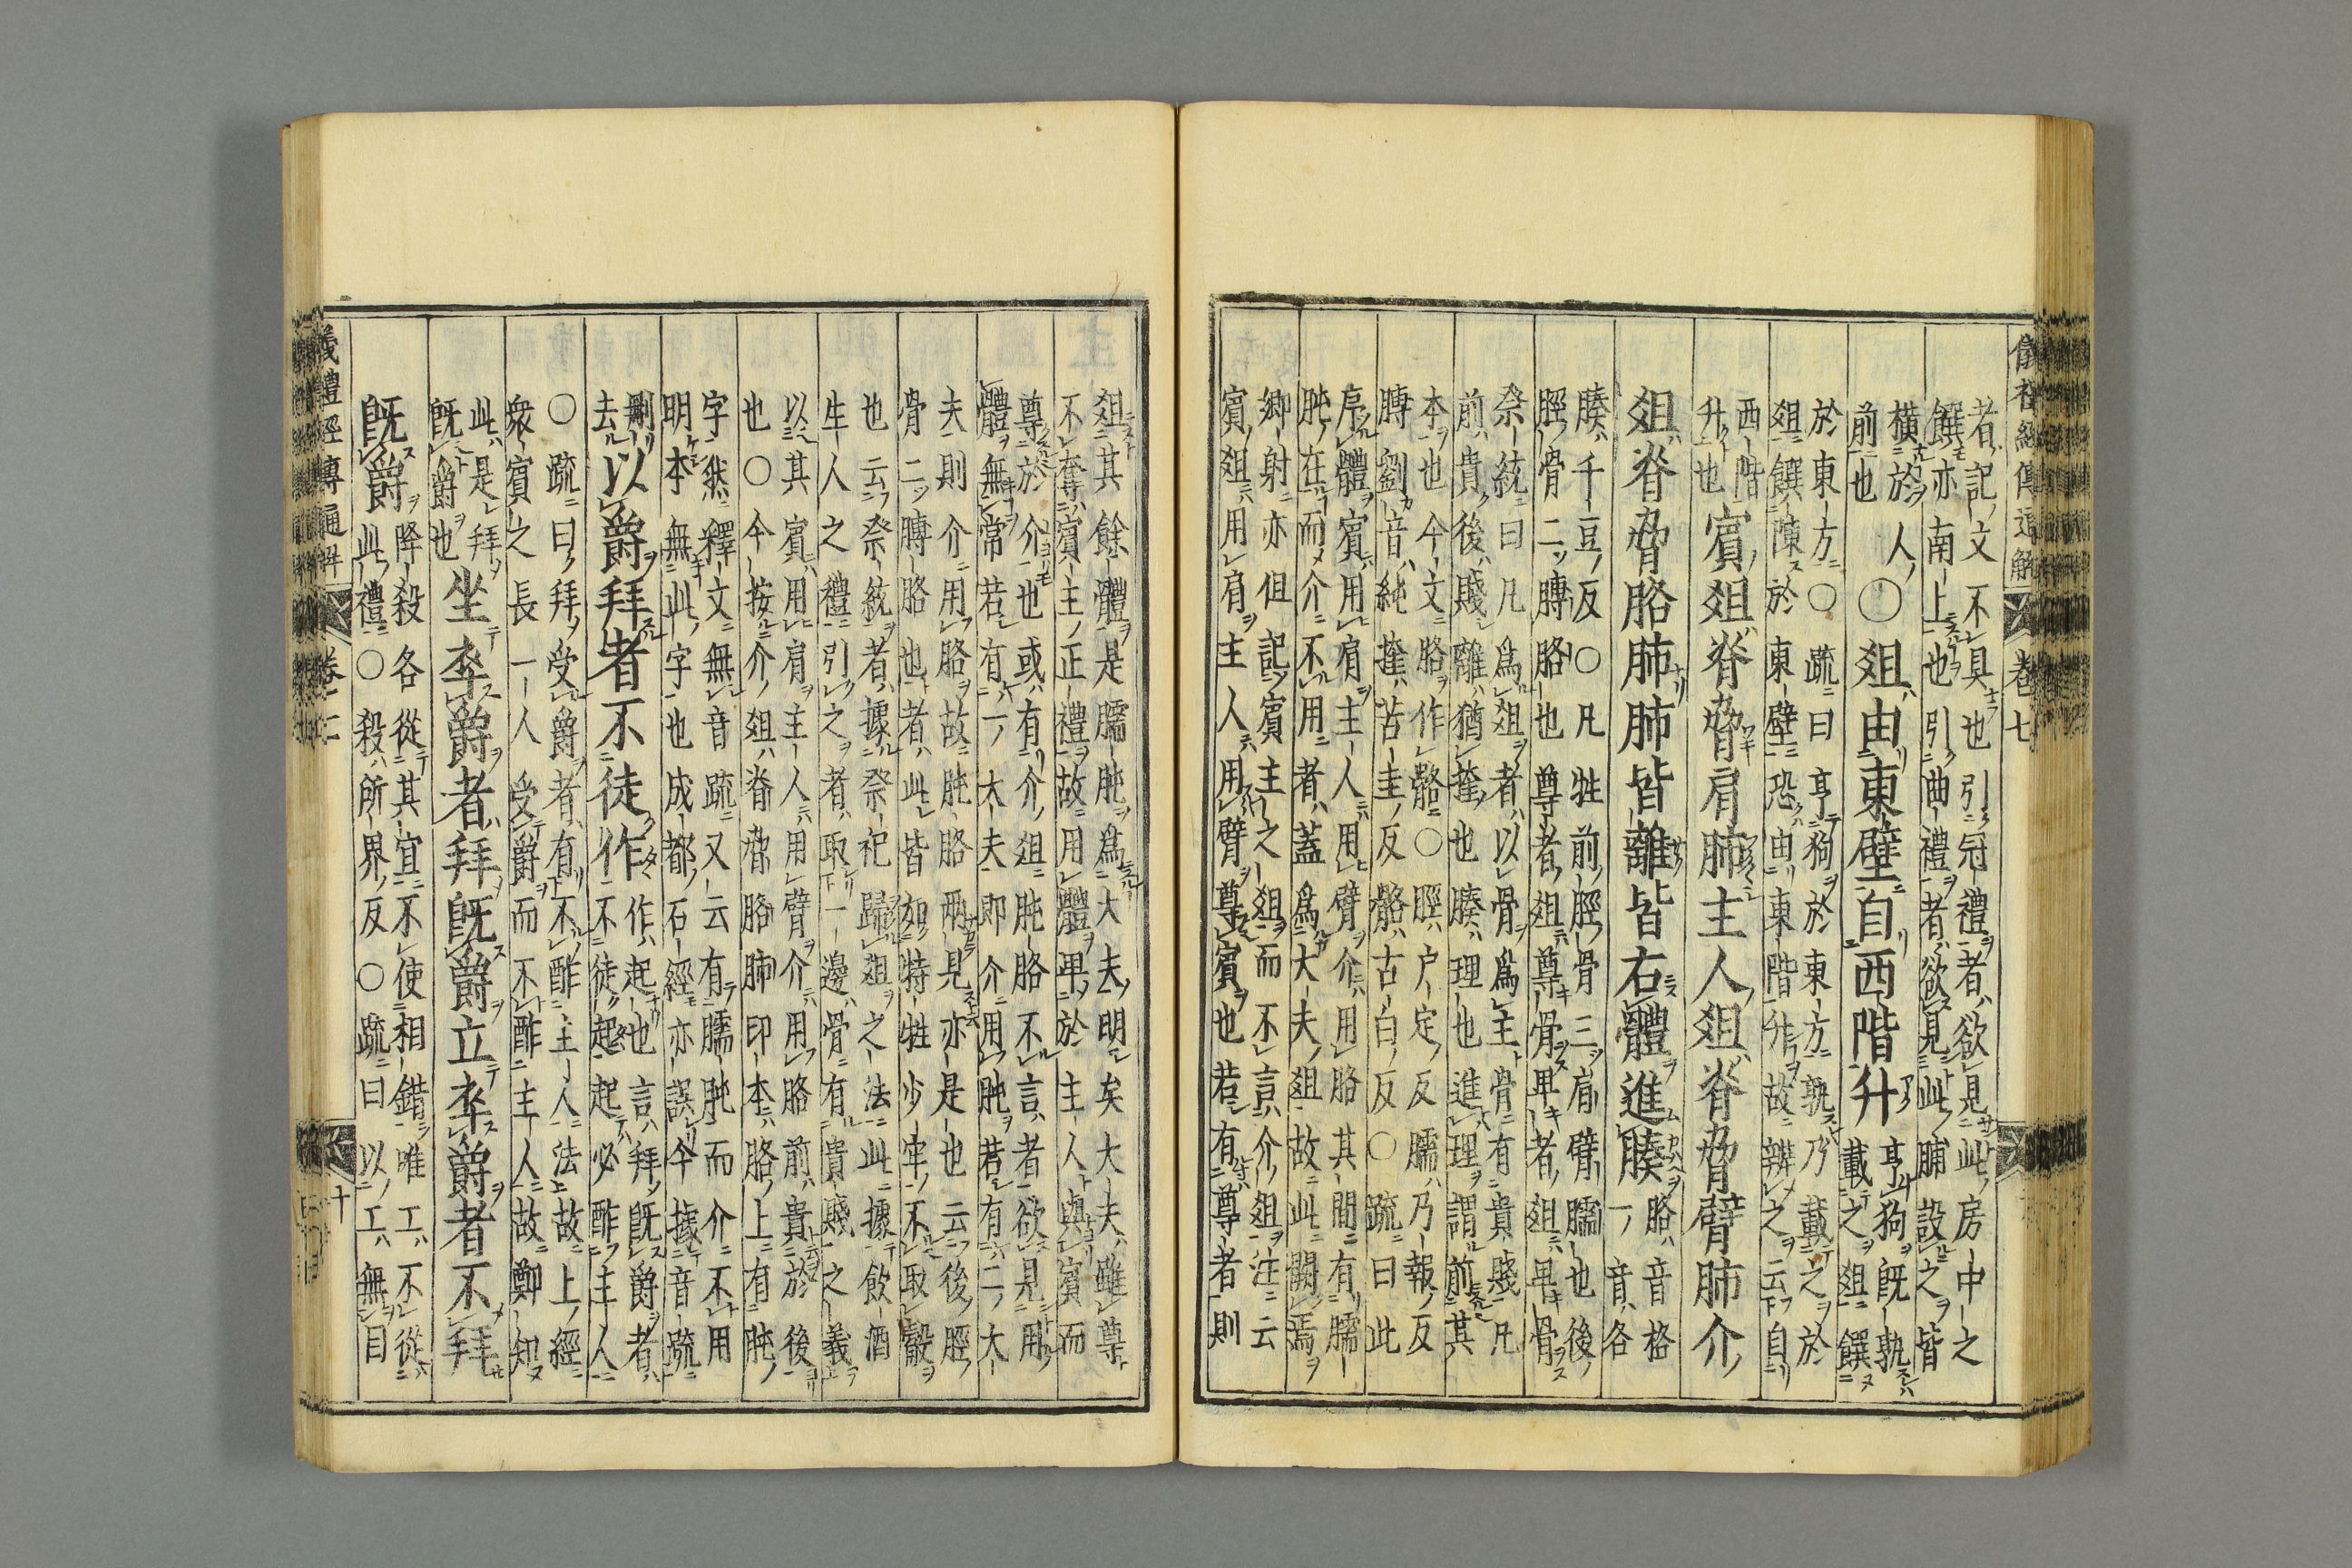 儀禮經傳通解 卷七
者記文不具也引冠禮者欲見此房中之
饌亦南上也引曲禮者欲見此脯設之皆
橫於人
前也
○俎由東壁自西階升
亨狗旣孰
載之俎饌
於東方○疏曰亨狗於東方孰乃載之於
俎饌陳於東壁恐由東階升故辨之云自
西階
升也
賓俎脊脅肩肺主人俎脊脅臂肺介
俎脊脅胳肺肺皆離皆右體進腠
胳音格
一音各
腠千豆反○凡牲前脛骨三肩臂臑也後
脛骨二膊胳也尊者俎尊骨卑者俎卑骨
祭統曰凡爲俎者以骨爲主骨有貴賤凡
前貴後賤離猶㨒也腠理也進理謂前其
本也今文胳作骼○脛戶定反臑乃報反
膊劉音純㨒苦圭反骼古白反○疏曰此
序體賓用肩主人用臂介用胳其間有臑
肫在而介不用者蓋爲大夫俎故此闕焉
鄉射亦但記賓主之俎而不言介俎注云
賓俎用肩主人用臂尊賓也若有尊者則
俎其餘體是臑肫爲大夫明矣大夫雖尊
不奪賓主正禮故用體卑於主人與賓而
尊於介也或有介俎肫胳不言者欲見用
體無常若有一大夫即介用肫若有二大
夫則介用胳故肫胳兩見亦是也云後脛
骨二膊胳也者此皆如特牲少牢不取觳
也云祭統者據祭祀歸俎之法此據飲酒
生人之禮引之者取一邊骨有貴賤之義
以其賓用肩主人用臂介用胳前貴於後
也○今按介俎脊脅胳肺印本胳上有肫
字然釋文無音疏又云有臑肫而介不用
明本無此字也成都石經亦誤今據音疏
刪去
以爵拜者不徒作
作起也言拜旣爵者
不徒起起必酢主人
○疏曰拜受爵者有不酢主人法故上經
衆賓之長一人受爵而不酢主人故鄭知
此是拜
旣爵也
坐卒爵者拜旣爵立卒爵者不拜
旣爵
降殺各從其宜不使相錯唯工不從
此禮○殺所界反○疏曰以工無目
儀禮經傳通解 卷七 十